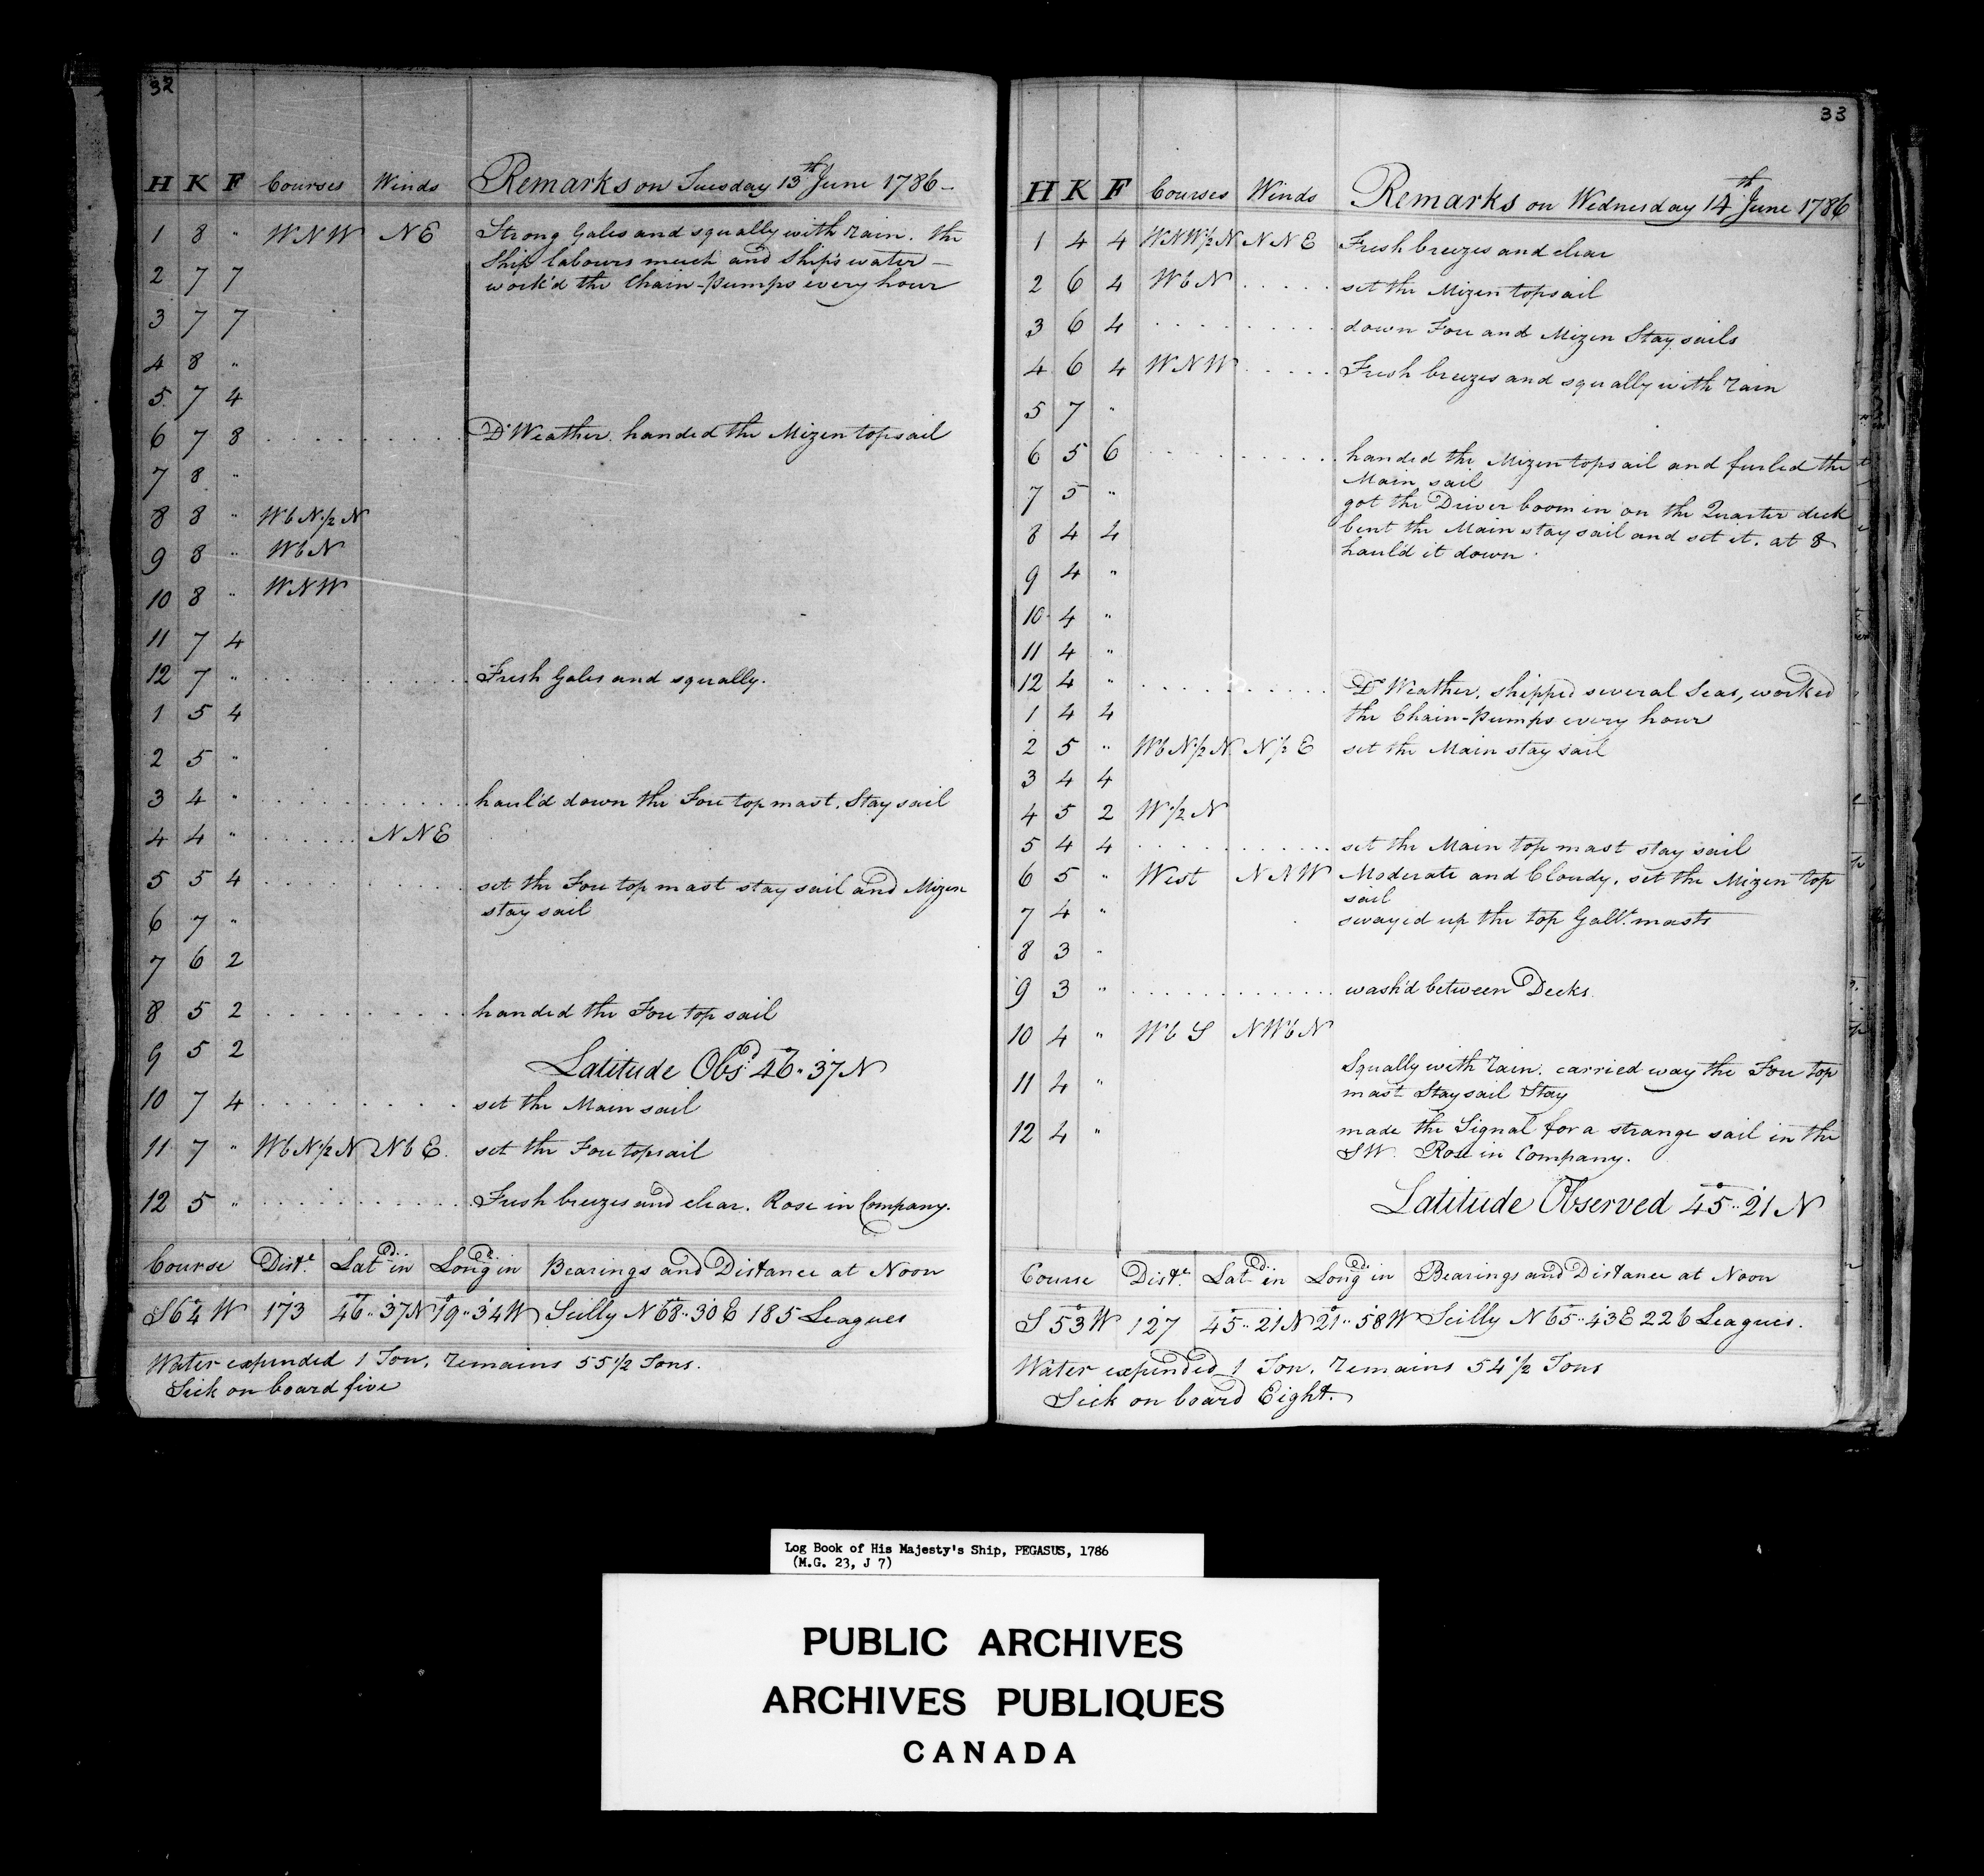 32
H K F Courses Winds Remarks on Tuesday 13th June 1786
1 8 " WNW NE Strong Gales and squally with rain. the
Ship labours much and Ship's water
2 7 7 work'd the Chain-Pumps every hour
3 7 7
4 8 "
5 7 4
6 7 8 Do Weather. handed the Mizen topsail
7 8 "
8 8 " WbN1/2N
9 8 " WbN
10 8 " WNW
11 7 4
12 7 " Fresh Gales and squally.
1 5 4
2 5 "
3 4 " haul'd down the Fore topmast Stay sail
4 4 " NNE
5 5 4 set the Fore top mast stay sail and Mizen
stay sail
6 7 "
7 6 2
8 5 2 handed the Fore top sail
9 5 2
Latitude Obsd 46°..37 N
10 7 4 set the Main sail
11 7 " WbN1/2N NbE. set the Fore topsail
12 5 " Fresh breezes and clear. Rose in Company.
Course Diste. Latd. in Longd. in Bearings and Distance at Noon
S64°W 173 46°..37N 19°..34W Scilly N68..30E 185 Leagues
Water expended 1 Ton. remains 55 1/2 Tons.
Sick on board five
33
H K F Courses Winds Remarks on Wednesday 14th June 1786
1 4 4 WNW1/2N NNE Fresh breezes and clear
2 6 4 WbN set the Mizen topsail
3 6 4 down Fore and Mizen Stay sails
4 6 4 WNW Fresh breezes and squally with rain
5 7 "
6 5 6 handed the Mizen topsail and furled the
Main sail
7 5 " got the Driver boom in on the Quarter deck
8 4 4 bent the Main stay sail and set it. at 8
haul'd it down
9 4 "
10 4 "
11 4 "
12 4 " Do Weather. shipped several Seas, worked
1 4 4 the Chain-Pumps every hour
2 5 " WbN1/2N N1/2E set the Main stay sail
3 4 4
4 5 2 W1/2N
5 4 4 set the Main top mast stay sail
6 5 " West NNW Moderate and Cloudy. set the Mizen top
sail
7 4 " swayed up the top Gallt. masts
8 3 "
9 3 " wash'd between Decks
10 4 " WbS NWbN
Squally with rain. carried way the Fore top
11 4 " mast Stay sail Stay
12 4 " made the Signal for a strange sail in the
SW. Rose in Company.
Latitude Observed 45°..21 N
Course Diste Latd. in Longd. in Bearings and Distance at Noon
S 53°W 127 45°..21N 21°..58W Scilly N65..43E 226 Leagues.
Water expended 1 Ton. remains 54 1/2 Tons
Sick on board Eight.
Log Book of His Majesty's Ship, PEGASUS, 1786
(M.G. 23, J 7)
PUBLIC ARCHIVES
ARCHIVES PUBLIQUES
CANADA